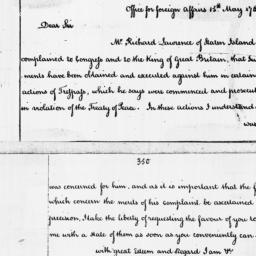 Office for foreign Affairs 15th May 178
Dear Sir
Mr. Richard Lawrence of Staten Island
complained to Congress and to the King of Great Britain, that
ments have been obtained and executed against him in certain
actions of Trespass, which he says were commenced and prosecut
in violation of the Treaty of Peace. In these actions I understand
was
350
was concerned for him, and as it is important that the
which concern the merits of his complaint be ascertained
precision, I take the liberty of requesting the favour of you to
me with a state of them as soon as you conveniently can.
with great Esteem and Regard I am &c